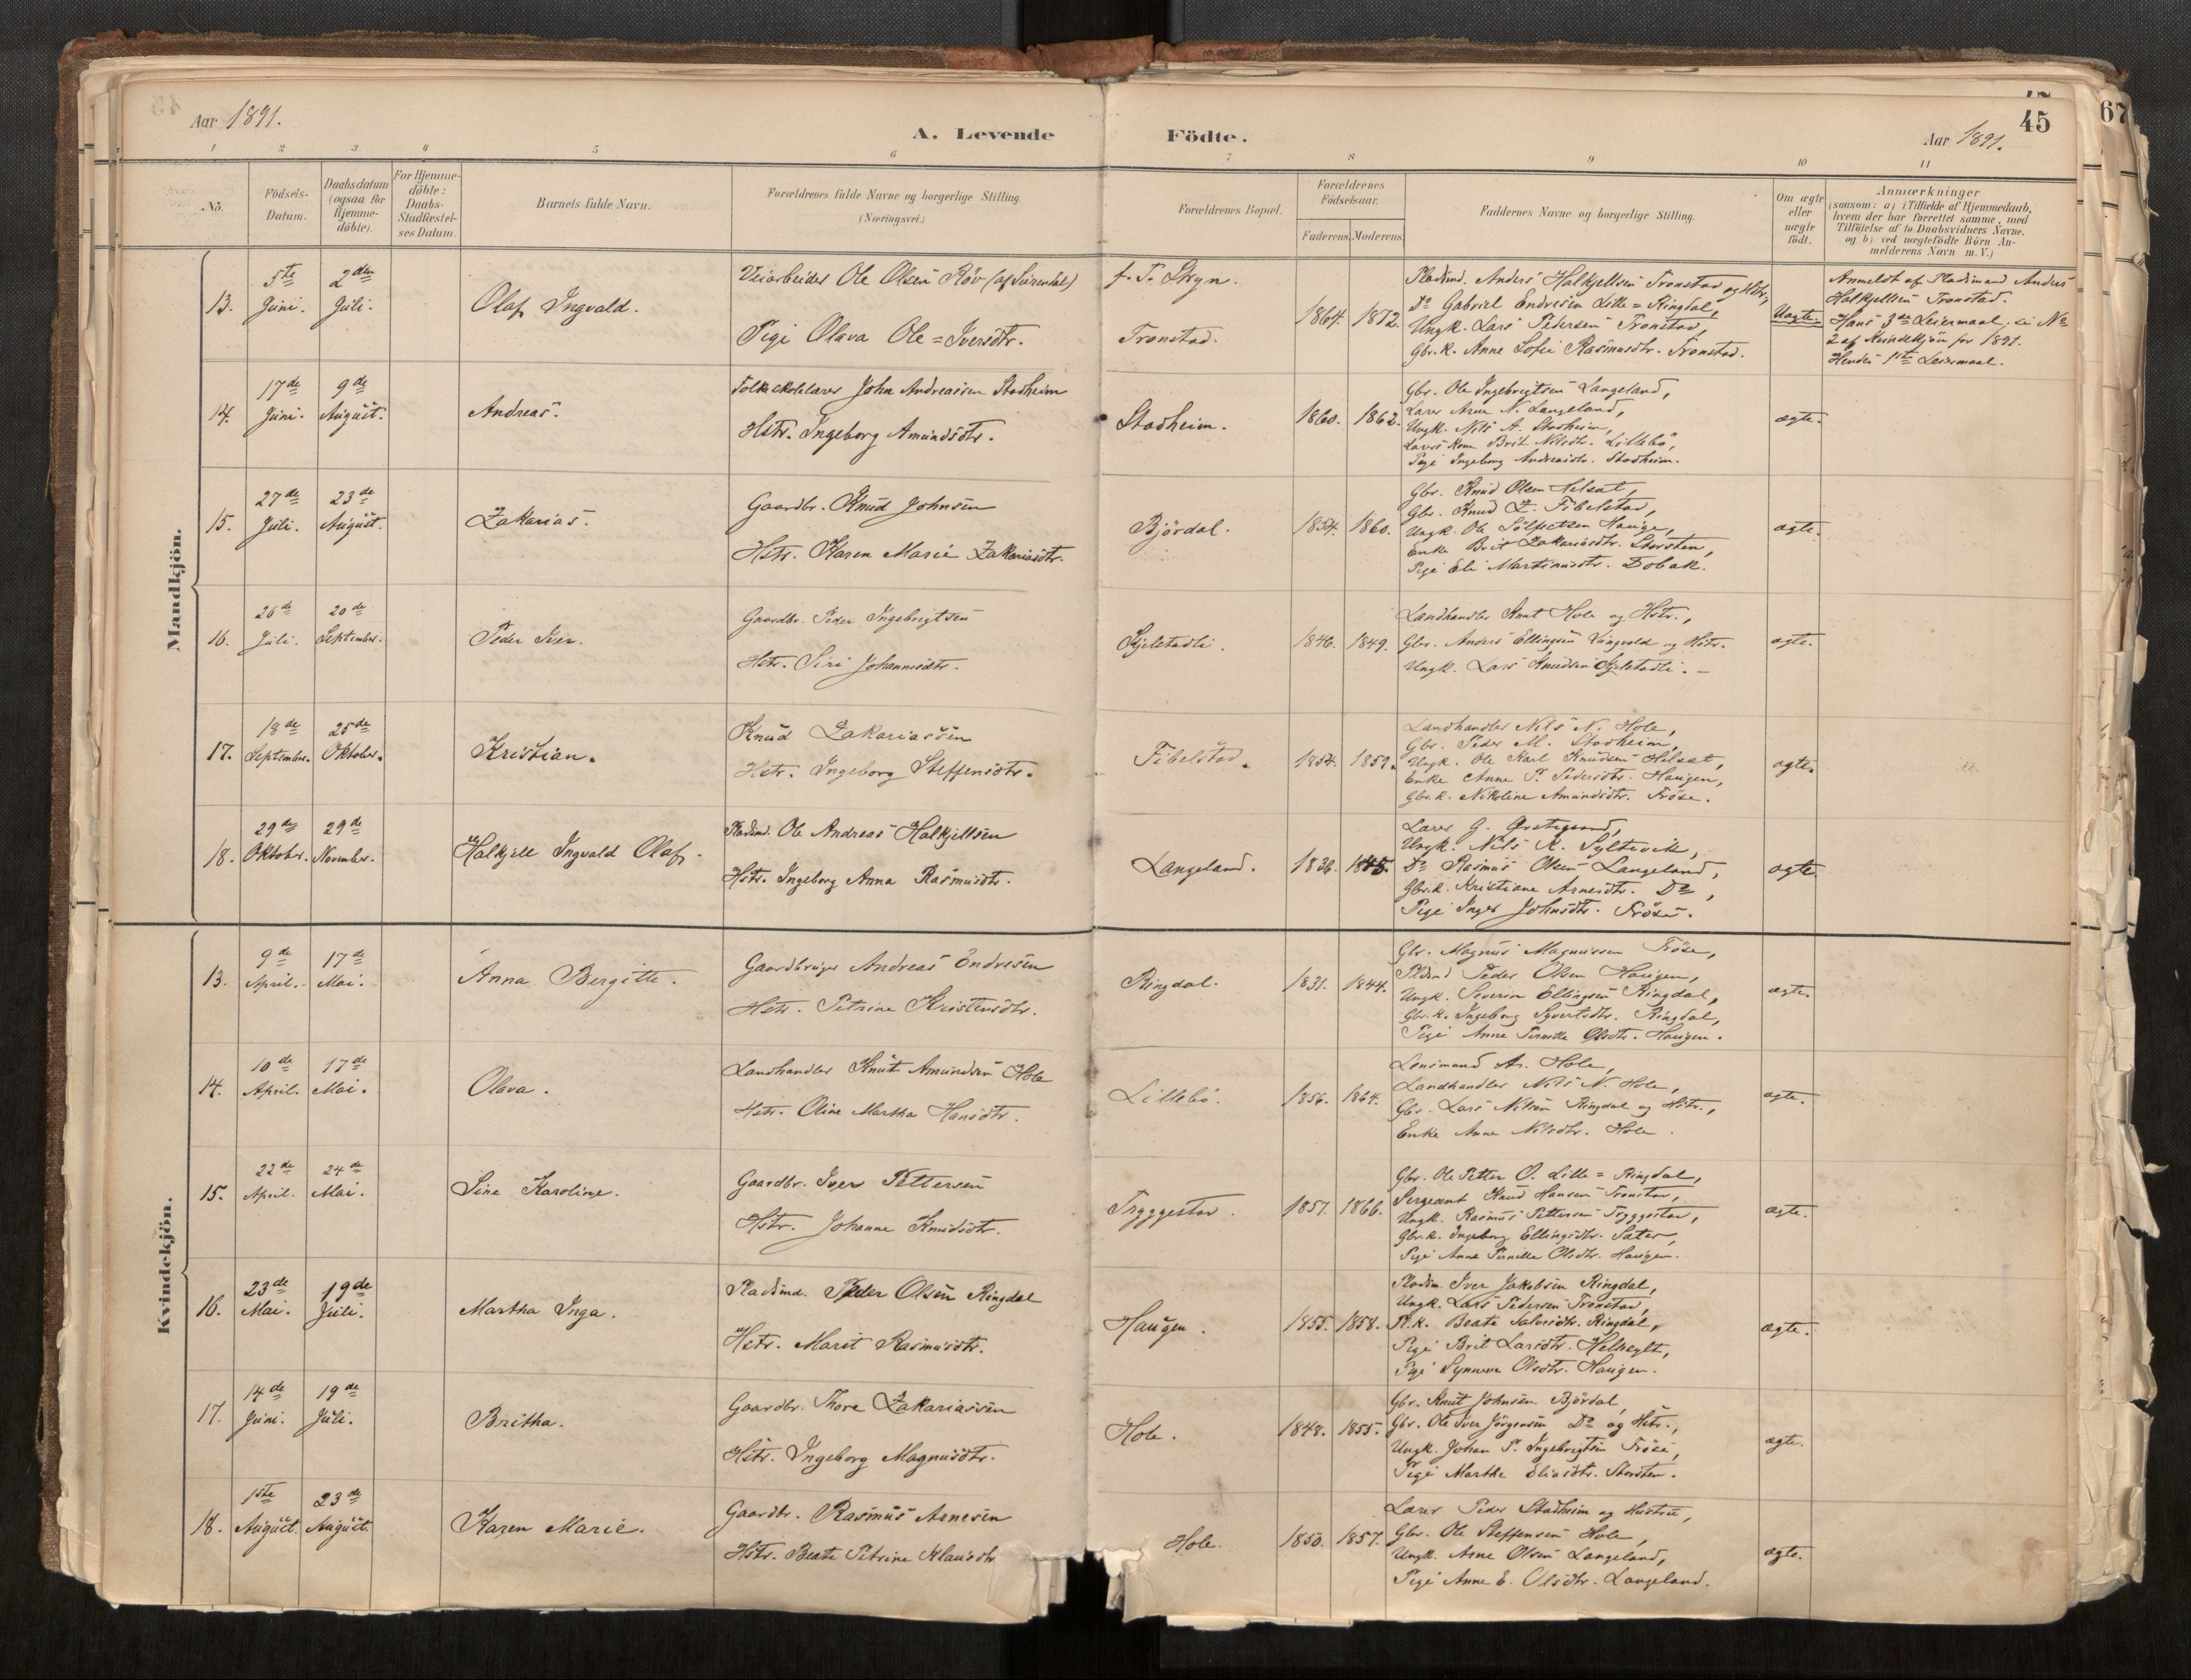 Aar 1891.
A. Levende Födte.
Aar 1891.
45
67
1 2 3 4 5 6 7 8 9 10 11
No.
Födsels-Datum.
Daabsdatum (ogsaa for Hjemme-döbte).
For Hjemme-döbte: Daabs-Stadfæstel-ses Datum.
Barnets fulde Navn.
Forældrenes fulde Navne og borgerlige Stilling. (Næringsvei.)
Forældrenes Bopæl.
Forældrenes Födselsaar.
Faderens. Moderens.
Faddernes Navne og borgerlige Stilling.
Om ægte eller uægte födt.
Anmærkninger
(saasom: a) i Tilfælde af Hjemmedaab, hvem der har forrettet samme, med Tilföielse af to Daabsvidners Navne. og b) ved uægtefödte Börn An-melderens Navn m. V.)
Mandkjön.
13. 5te Juni. 2den Juli.
Olaf Ingvald.
Veiarbeider Ole Olsen Röv (af Surendal)
Pige Olava Ole=Iversdtr.
f. T. Stryn.
Tronstad.
1864. 1872.
Pladsmd. Anders Halkjellsen Tronstad og Hstr.,
Do Gabriel Endresen Lille=Ringdal,
Ungk. Lars Pedersen Tronstad,
Gbr.k. Anne Sofie Rasmusdtr. Tronstad.
Uægte.
Anmeldt af Pladsmand Anders
Halkjellsen Tronstad.
Hans 3de Leiermaal, se No
2 af Kvindekjön for 1891.
Hendes 1ste Leiermaal.
14. 17de Juni. 9de August.
Andreas.
Folkeskolelærer John Andreassen Stadheim
Hstr. Ingeborg Amundsdtr.
Stadheim.
1860. 1862.
Gbr. Ole Ingebrigtsen Langeland,
Lærer Arne N. Langeland,
Ungk. Nils A. Stadheim,
Lærers Kone Brit Nilsdtr. Lillebö,
Pige Ingeborg Andreasdtr. Stadheim.
ægte.
15. 27de Juli. 23de August.
Zakarias.
Gaardbr. Knud Johnsen
Hstr. Karen Marie Zakariasdtr.
Björdal.
1854. 1860.
Gbr. Knud Olsen Helsæt,
Gbr. Knud Z. Fibelstad,
Ungk. Ole Haugen,
Enke Brit Zakariasdtr. Storsten,
Pige Eli Martinusdtr. Dobak.
ægte.
16. 26de Juli. 20de September.
Peder Iver.
Gaardbr. Peder Ingebrigtsen
Hstr. Siri Johannesdtr.
Kjelstadli.
1846. 1849.
Landhandler Knut Hole og Hstr.,
Gbr. Anders Ellingsen og Hstr.
Ungk. Lars Knudsen Kjelstadli.
ægte.
17. 18de September. 25de Oktober.
Kristian.
Knud Zakariassen
Hstr. Ingeborg Steffensdtr.
Fibelstad.
1854. 1859.
Landhandler Nils N. Hole,
Gbr. Peder M. Stadheim,
Ungk. Ole Karl Knudsen Helsæt,
Enke Anne P. Pedersdtr. Haugen,
Gbr.k. Nikoline Amundsdtr. Fröse.
ægte.
18. 29de Oktober. 29de November.
Halkjell Ingvald Olaf.
Pladsmd. Ole Andreas Halkjellsen
Hstr. Ingeborg Anna Rasmusdtr.
Langeland.
1836. 1845.
Lærer G.
Ungk. Nils K. Syltevik,
Do Rasmus Olsen Langeland,
Gbr.k. Kristiane Arnesdtr. Do,
Pige Inger Johnsdtr. Fröse.
ægte.
Kvindekjön.
13. 9de April. 17de Mai.
Anna Bergitte.
Gaardbruger Andreas Endresen
Hstr. Petrine Kristensdtr.
Ringdal.
1831. 1844.
Gbr. Magnus Magnussen Fröse,
Pladsmd Peder Olsen Haugen,
Ungk. Severin Ellingsen Ringdal,
Gbr.k. Ingeborg Syvertsdtr. Ringdal,
Pige Anne Pernille Olsdtr. Haugen.
ægte.
14. 10de April. 17de Mai.
Olava.
Landhandler Knut Amundsen Hole
Hstr. Oline Martha Hansdtr.
Lillebö.
1856. 1864.
Lensmand A. Hole,
Landhandler Nils N. Hole,
Gbr. Lars Nilsen Ringdal og Hstr.,
Enke Anne Nilsdtr. Hole.
ægte.
15. 22de April. 24de Mai.
Sine Karoline.
Gaardbr. Iver Pettersen
Hstr. Johanne Knudsdtr.
Tryggestad.
1857. 1866.
Gbr. Ole Petter O. Lille=Ringdal,
Sergeant Knud Hansen Tronstad,
Ungk. Rasmus Pettersen Tryggestad,
Gbr.k. Ingeborg Ellingsdtr. Sæter,
Pige Anne Pernille Olsdtr. Haugen.
ægte.
16. 23de Mai. 19de Juli.
Martha Inga.
Pladsmd. Peder Olsen Ringdal
Hstr. Marit Rasmusdtr.
Haugen.
1855. 1858.
Pladsm. Iver Jakobsen Ringdal,
Ungk. Lars Pedersen Tronstad,
Pl.k. Beate Salvesdtr. Ringdal,
Pige Brit Larsdtr. Hellesylt,
Pige Synneve Olsdtr. Haugen.
ægte.
17. 14de Juni. 19de Juli.
Britha.
Gaardbr. Thore Zakariassen
Hstr. Ingeborg Magnusdtr.
Hole.
1848. 1855.
Gbr. Knut Johnsen Björdal,
Gbr. Ole Iver Jörgensen Do og Hstr.,
Ungk. Johan P. Ingebrigtsen Fröse,
Pige Marthe Eliasdtr. Storsten.
ægte.
18. 1ste August. 23de August.
Karen Marie.
Gaardbr. Rasmus Arnesen
Hstr. Beate Petrine Klausdtr
Hole.
1850. 1857.
Lærer Peder Stadheim og Hustru,
Gbr. Ole Steffensen Hole,
Ungk. Arne Olsen Langeland,
Pige Anne E. Olsdtr. Langeland.
ægte.